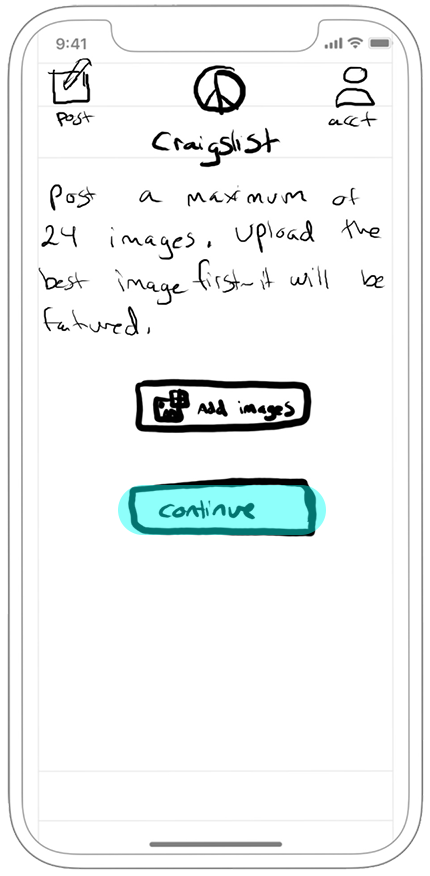 9:41
Post
acct
Craigslist
Post a maximum of
24 images. Upload the
best image first-it will be
featured.
Add images
continue